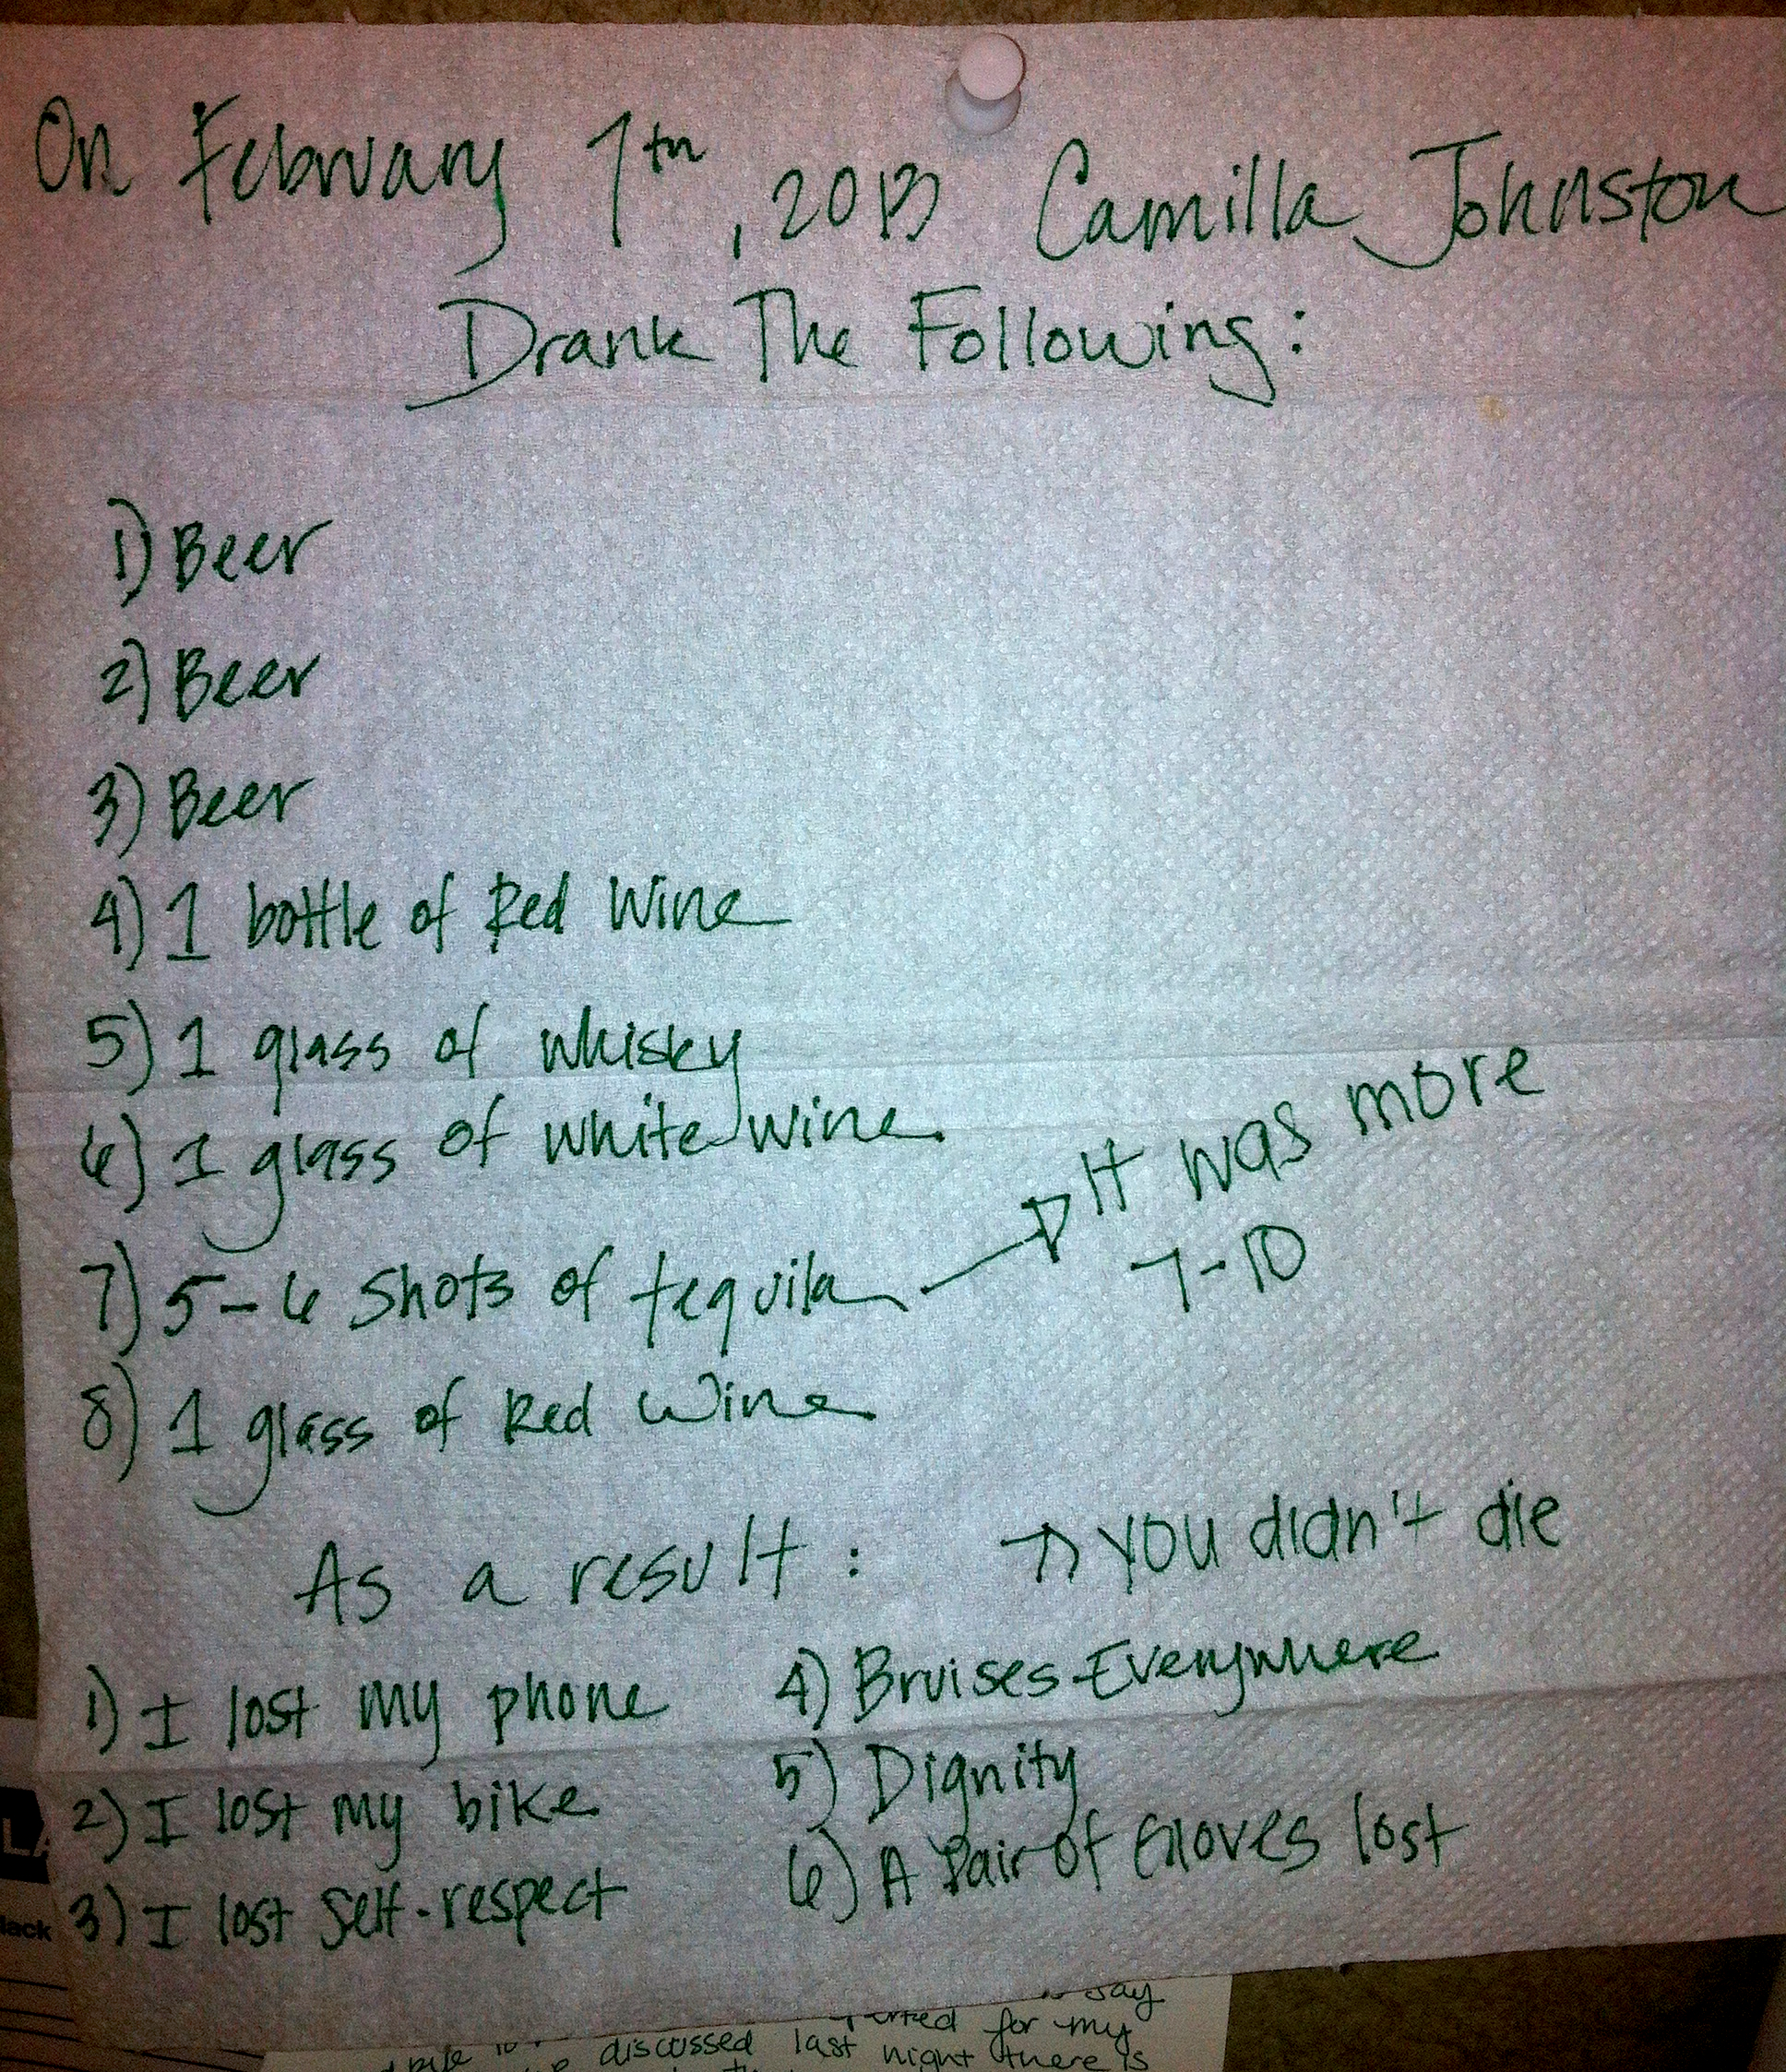 On February 7th, 2013 Camilla Johnston
Drank The Following:
1) Beer
2) Beer
3) Beer
4) 1 bottle of Red Wine
5) 1 glass of whisky
6) 1 glass of white wine
7) 5-6 shots of tequila → It was more
7-10
8) 1 glass of Red Wine
As a result: → you didn't die
1) I lost my phone
2) I lost my bike
3) I lost self-respect
4) Bruises-Everywhere
5) Dignity
6) A Pair of Gloves lost
lack
say
for my
discussed last night there is